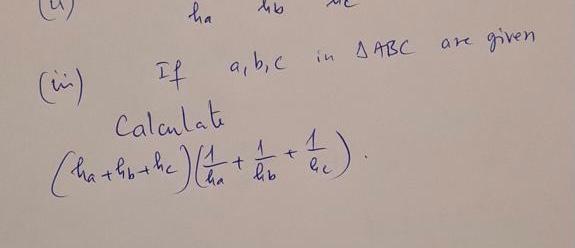 (ii) ha hb hc
(iii) If a, b, c in ΔABC are given
Calculate
(ha + hb + hc)(1/ha + 1/hb + 1/hc).